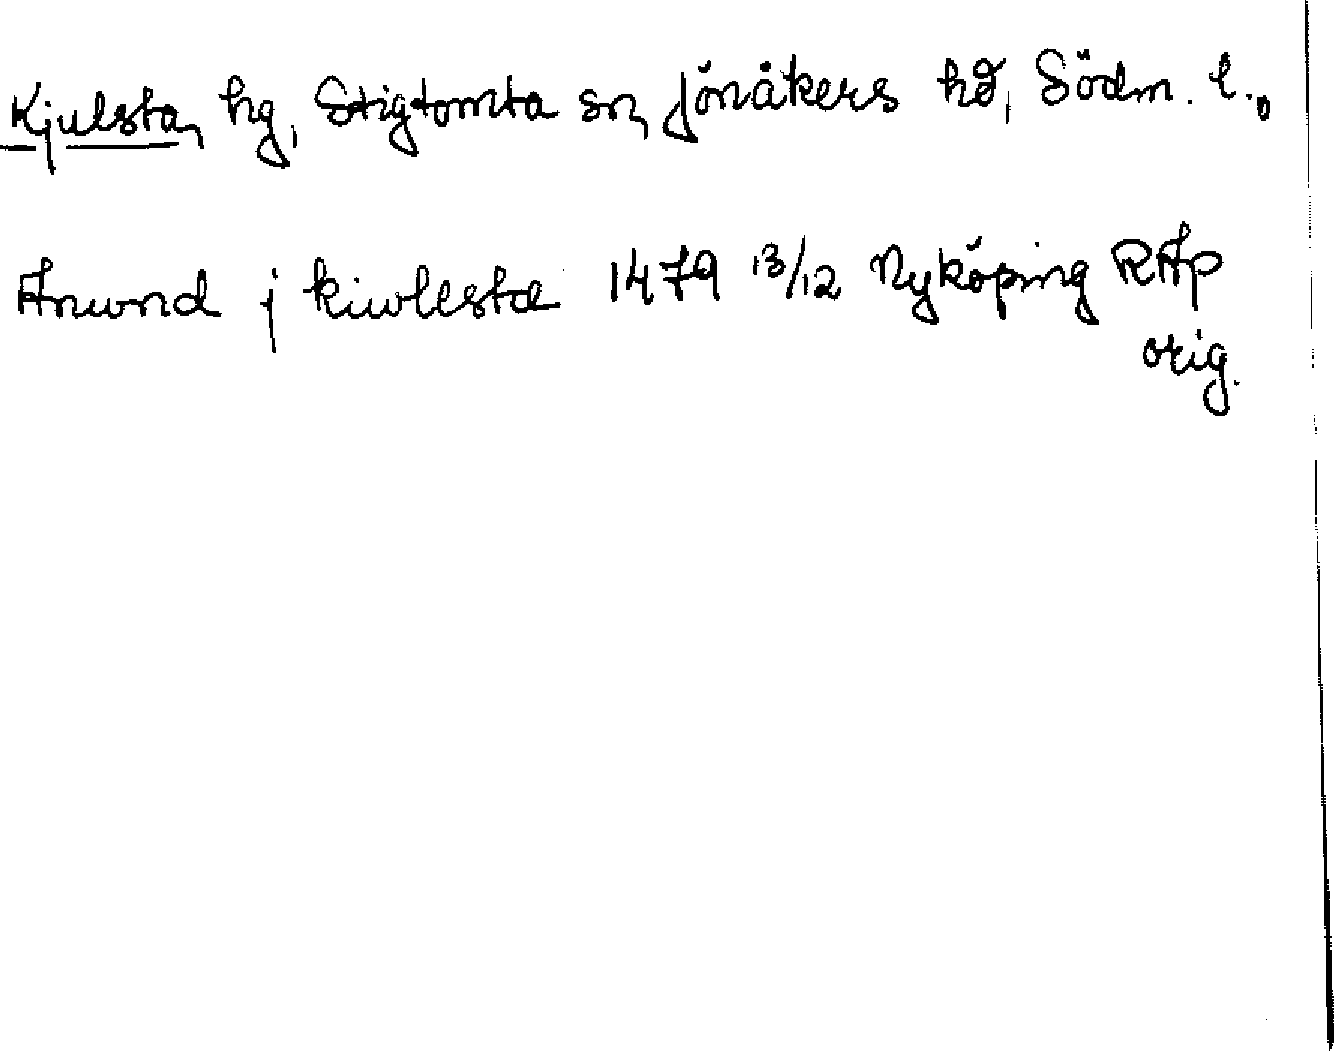 Kjulsta, hg, Stigtomta sn, Jönåkers hd, Södm. l.,
Anund j kiwlesta 1479 13/12 Nyköping RAp
orig.